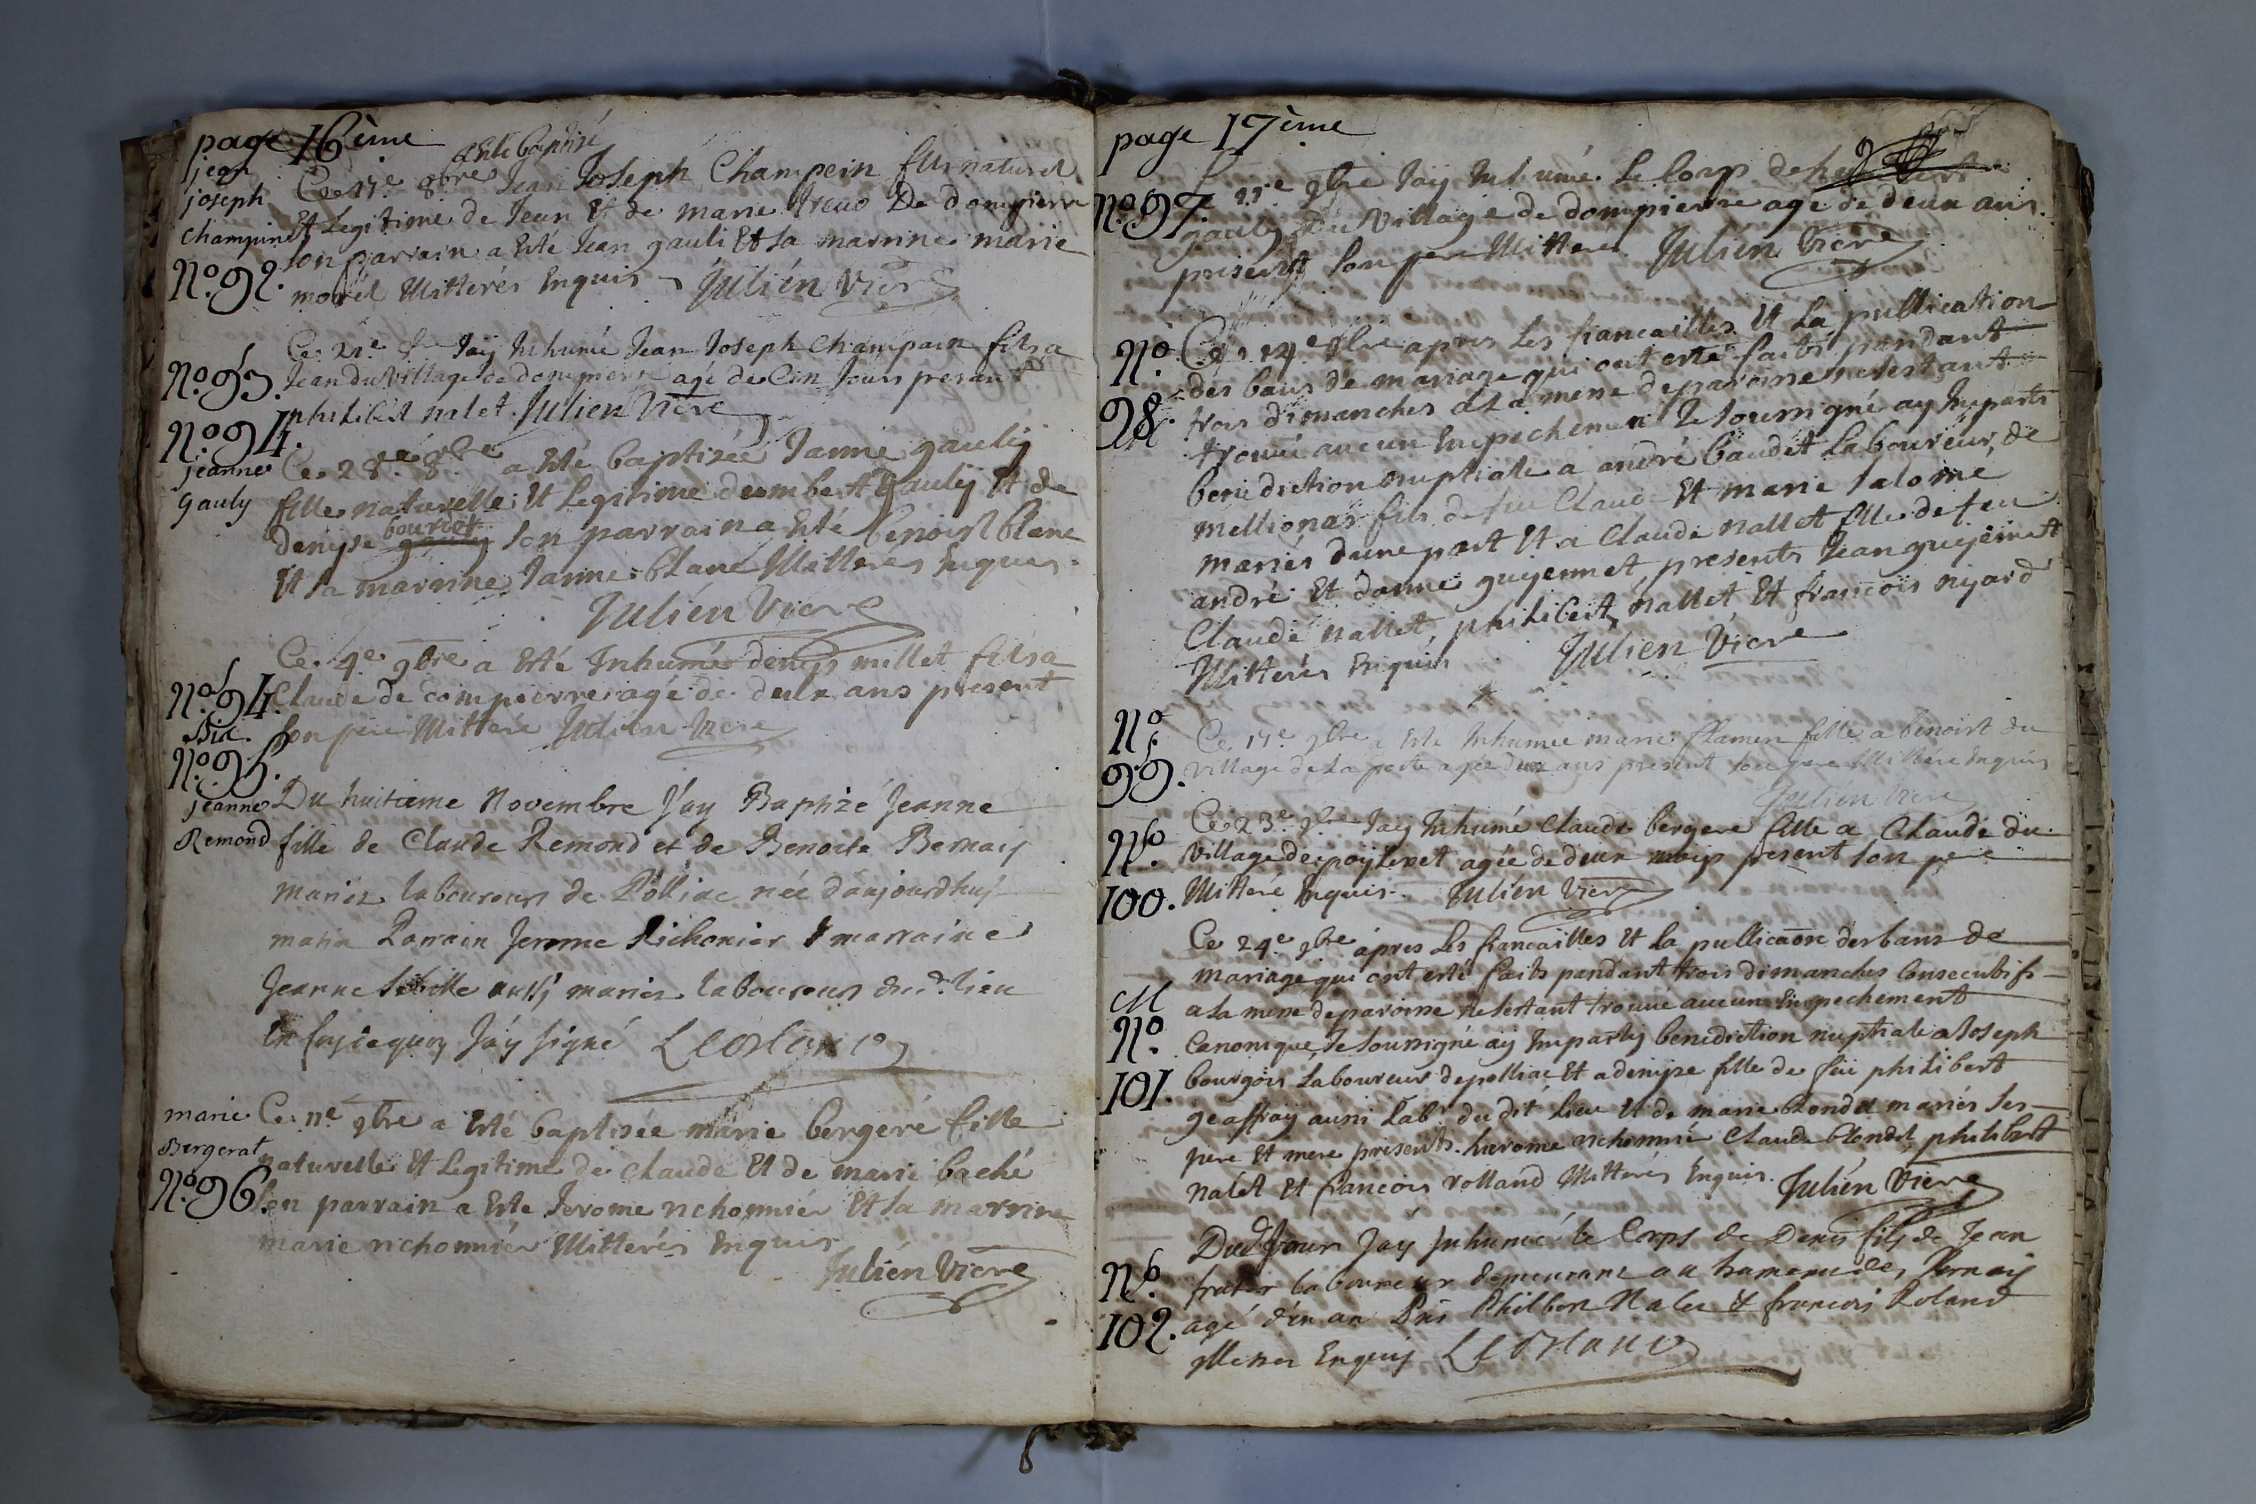 page 16ème
jean
joseph
champine
N.o 92.
a Esté baptisé
Ce 17e 8bre Jean Joseph Champein fils naturel
Et Legitime de Jean Et de marie De dompierre
son parrain a Esté Jean gauli Et sa marrine marie
morel Illitterés Enquis Julién Viere
N.o 93.
Ce 21e Jay Inhumé Jean Joseph Champain fils a
Jean du Village de dompierre agé de Cin Jours presant
philibert nalet Julien Viere
N.o 94.
jeanne
gauly
Ce 28e 8bre a Esté baptisée Janne gauly
fille naturelle Et Legitime dumbert gauly Et de
denyse gauly bouriot son parrain a Esté benoist blanc
Et sa marrine Janne blanc Illitterés Enquis
Julién Viere
N.o 94.
Bis.
Ce 4e 9bre a Esté Inhumé denys millet fils a
Claude de dompierre agé de deux ans present
son pere Illitteré Julién Viere
N.o 95.
jeanne
Remond
Du huitieme Novembre J'ay Baptizé Jeanne
fille de Claude Remond et de Benoite Bernais
mariez laboureurs de Polliac née d'aujourdhuy
matin Parrain Jerome Richonier & marraine
Jeanne Sibille aussy mariez laboureurs dud. lieu
En foy de quoy J'ay signé
marie
Bergerat
N.o 96.
Ce 11e 9bre a Esté baptisée marie bergeré fille
naturelle Et Legitime de Claude Et de marie baché
son parrain a Este Jerome richonnier Et sa marrine
marie richonnier Illitterés Enquis
Julién Viere
page 17ème
N.o 97.
9bre Jay Inhumé Le Corps de
gauly Du Village de dompierre agé de deux ans
present son pere Illitteré Julién Viere
N.o
98.
Ce 14e 9bre apres Les fiancailles Et La publication
des bans de mariage qui ont esté faits pandant
trois dimanches a La mene de paroisse ne sestant
trouvé aucun Enpechement Je soussigné ay Imparti
benediction nuptiale a andré baudet Laboureur de
mellionas fils de feu Claude Et marie Salome
mariés dune part Et a Claude nallet fille de feu
andré Et danne guyennet presents Jean guyennet
Claude nallet, philibert nallet Et francois nyard
Illitterés Enquis Julien Viere
N.o
99.
Ce 17e 9bre a Esté Inhumée marie flamen fille a benoist du
village de La poste agée deux ans present son pere Illitteré Enquis
Julien Viere
N.o
100.
Ce 23e 9bre Jay Inhumé Claude bergere fille a Claude du
Village de agée de deux mois present son pere
Illitteré Enquis Julién Viere
M
N.o
101.
Ce 24e 9bre apres Les fiancailles Et La publicaon des bans de
mariage qui ont esté faits pandant trois dimanches Consecutifs
a La mene de paroisse ne sestant trouvé aucun Enpechement
Canonique, Je soussigné ay Imparty benediction nuptiale a Joseph
bourgois Laboureur de polliac Et a denyse fille de feu philibert
geaffray aussi Labr dudit Lieu Et de marie blondel mariés ses
pere Et mere presents. hierome richonnié Claude blondel, philibert
nalet Et francois rolland Illitterés Enquis. Julién Viere
N.o
102.
Dud Jour Jay Inhumé le Corps de Denis fils de Jean
frater laboureur demeurant au hameau des Bernais
agé d'un an Pnts Philbert Nalet & francois Roland
Illitteres Enquis